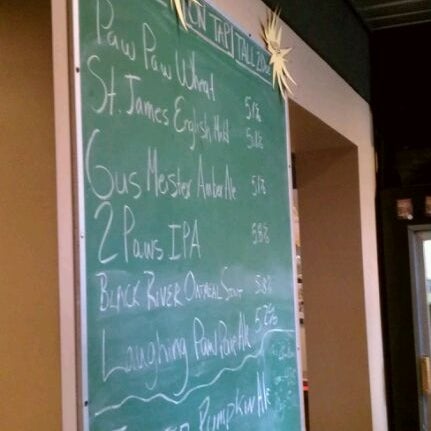 ON TAP TALL 20
Paw Paw Wheat 5.1%
St. James English Mild
Gus Meister Amber Ale 5.1%
2 Paws IPA 5.8%
Black River Oatmeal Stout 5.8%
Laughing Paw Pale Ale 5.2%
Pumpkin Ale